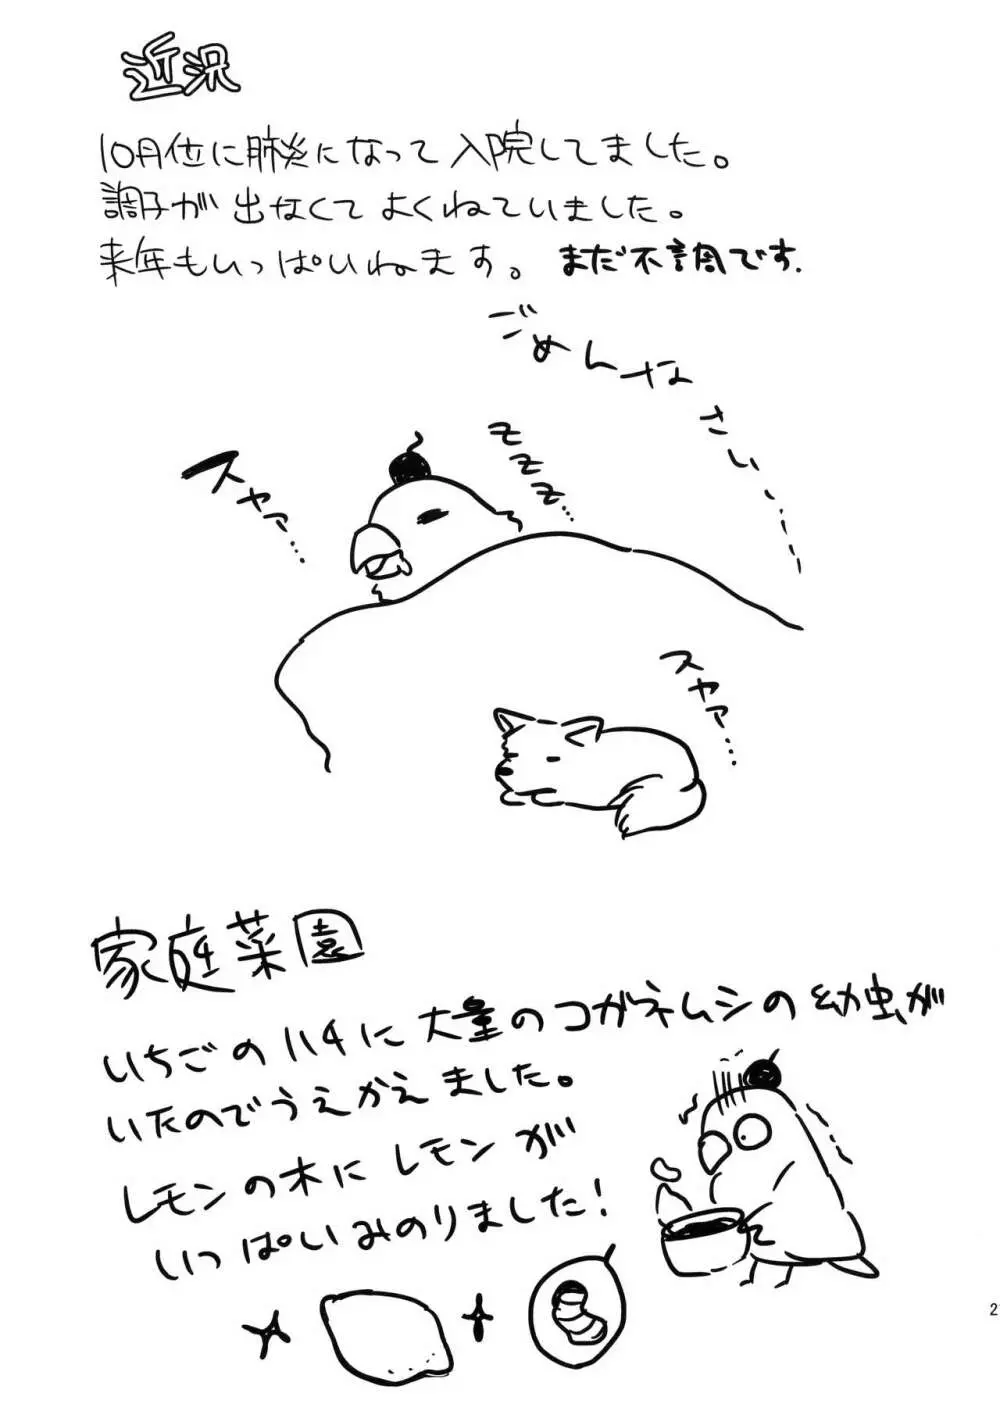 近況
10月位に肺炎になって入院してました。
調子が出なくてよくねていました。
来年もいっぱいねます。まだ不調です.
ごめんなさい……
スヤァ…
zzz…
スヤァ…
家庭菜園
いちごのハチに大量のコガネムシの幼虫が
いたのでうえかえました。
レモンの木にレモンが
いっぱいみのりました!
2